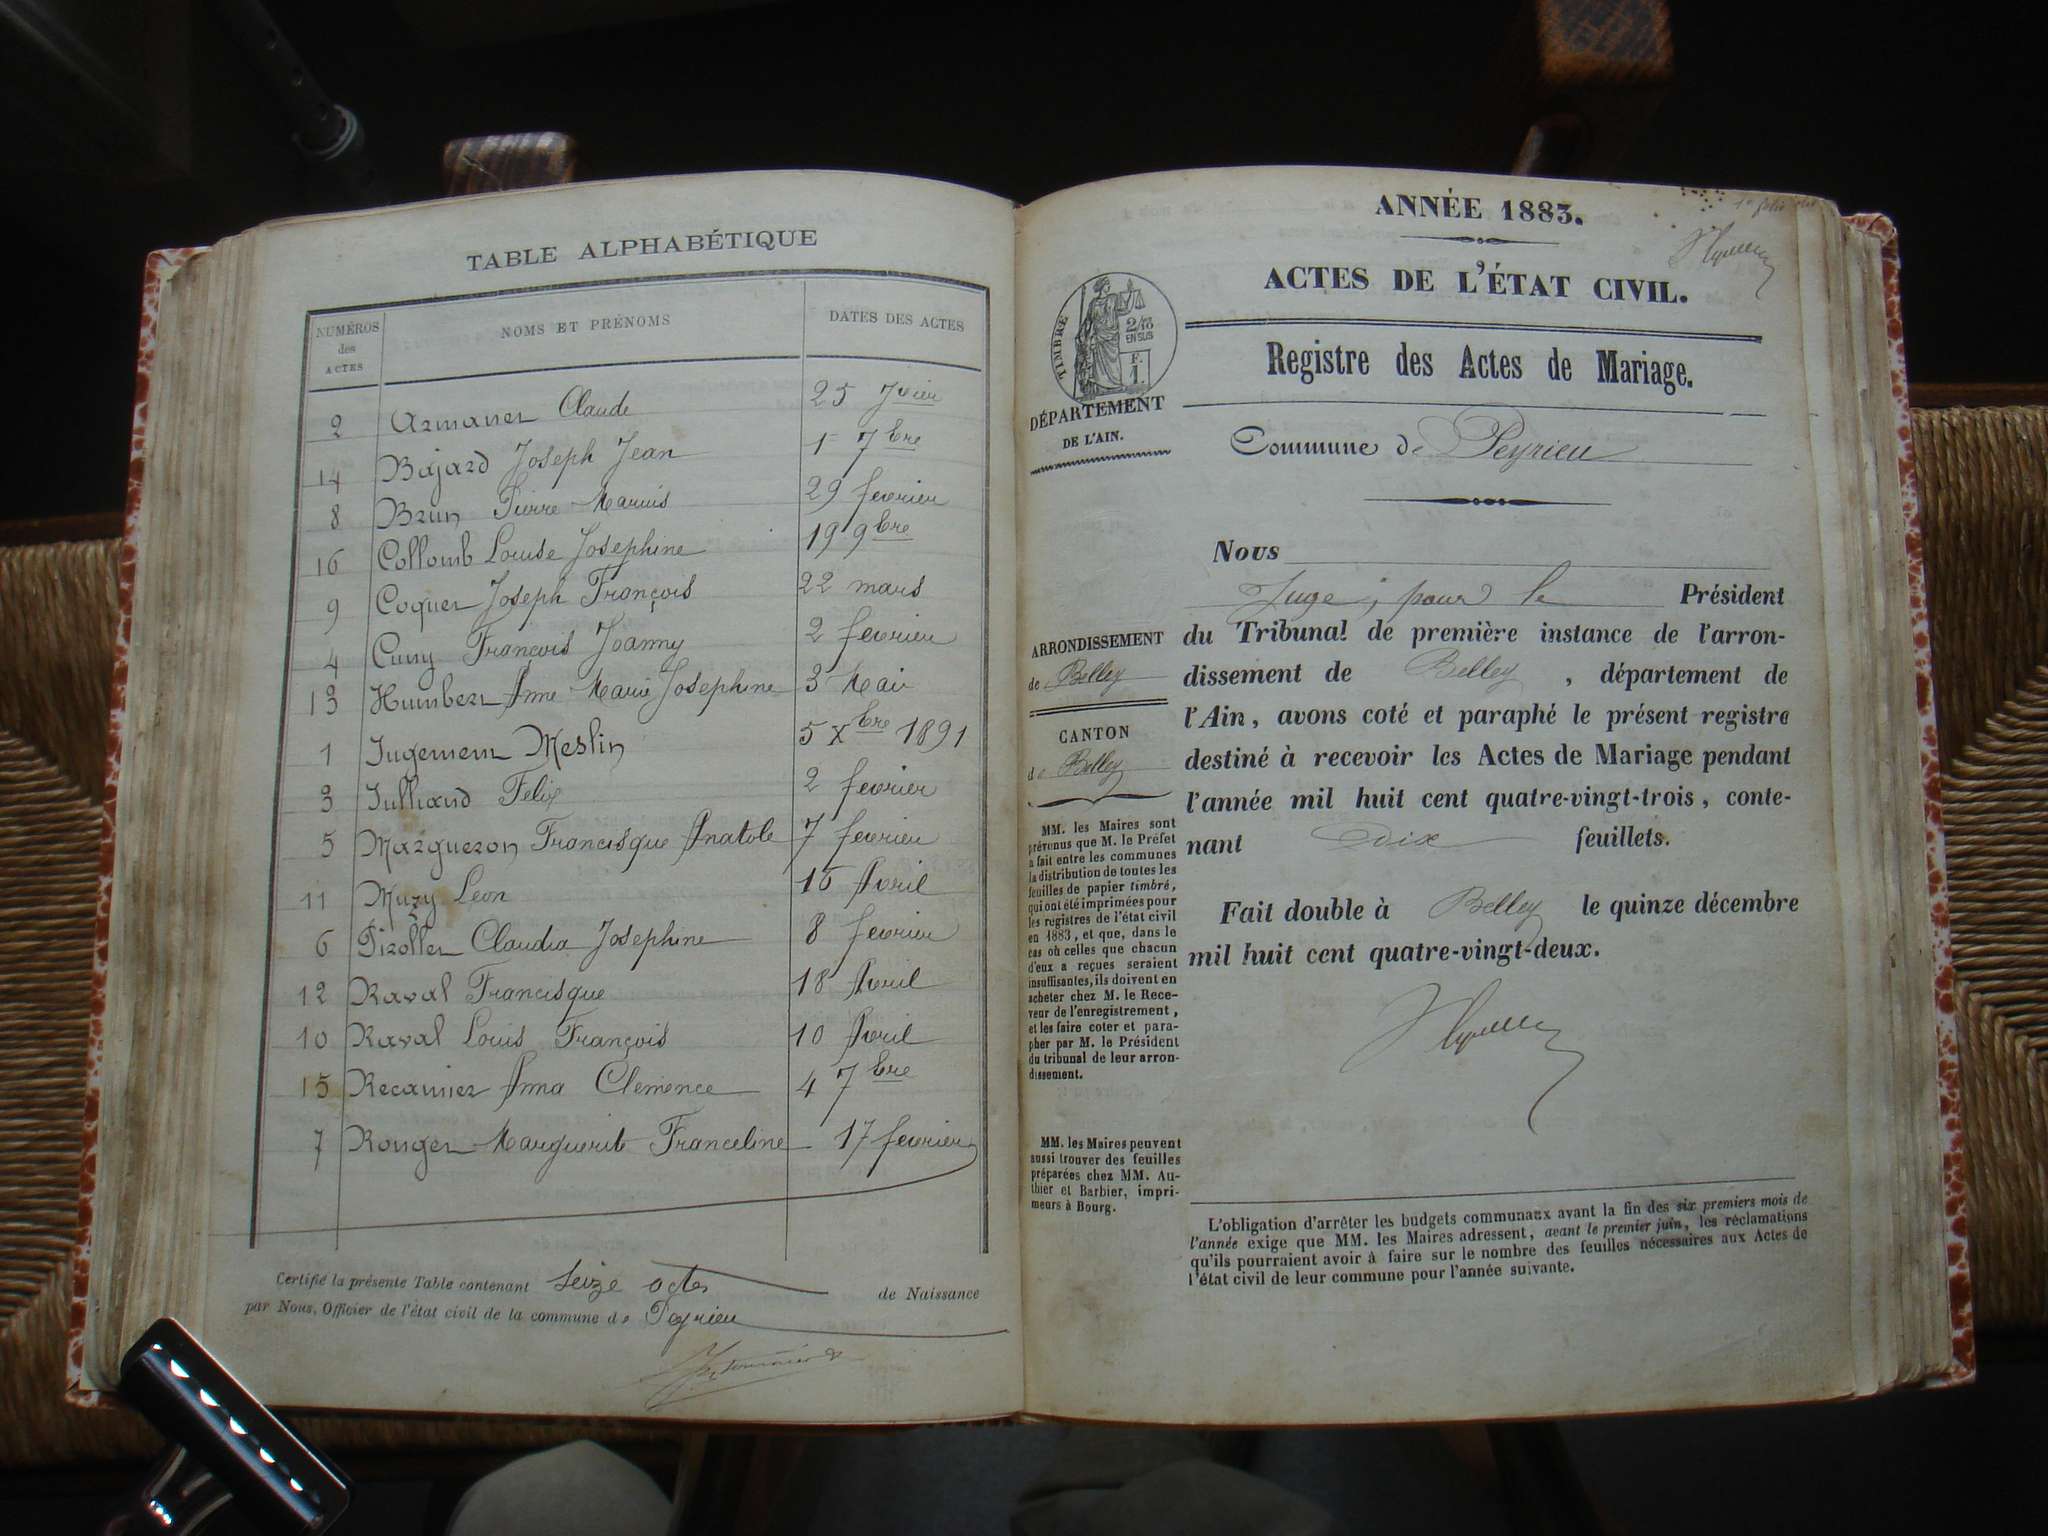 TABLE ALPHABÉTIQUE
NUMÉROS des ACTES NOMS ET PRÉNOMS DATES DES ACTES
2 Armanet Claude 25 Jvier
14 Bajard Joseph Jean 1er 7bre
8 Brun Pierre Marius 29 fevrier
16 Collomb Louise Josephine 19 9bre
9 Coquet Joseph François 22 mars
4 Cuny François Joanny 2 fevrier
13 Humbert Anne Marie Josephine 3 Mai
1 Jugement Meslin 5 Xbre 1891
3 Julliand Felix 2 fevrier
5 Margueron Francisque Anatole 7 fevrier
11 Muzy Leon 15 Avril
6 Pirollet Claudia Josephine 8 fevrier
12 Raval Francisque 18 Avril
10 Raval Louis François 10 Avril
15 Recamier Anna Clemence 4 7bre
7 Rouget Marguerite Franceline 17 fevrier
Certifié la présente Table contenant Seize actes de Naissance
par Nous, Officier de l'état civil de la commune de Peyrieu
ANNÉE 1883.
ACTES DE L'ÉTAT CIVIL.
TIMBRE
2/10
EN SUS
F.
1.
Registre des Actes de Mariage.
DÉPARTEMENT
DE L'AIN.
Commune de Peyrieu
Nous
Juge, pour le Président
du Tribunal de première instance de l'arron-
dissement de Belley, département de
l'Ain, avons coté et paraphé le présent registre
destiné à recevoir les Actes de Mariage pendant
l'année mil huit cent quatre-vingt-trois, conte-
nant Dix feuillets.
Fait double à Belley le quinze décembre
mil huit cent quatre-vingt-deux.
ARRONDISSEMENT
de Belley
CANTON
de Belley
MM. les Maires sont
prévenus que M. le Préfet
a fait entre les communes
la distribution de toutes les
feuilles de papier timbré,
qui ont été imprimées pour
les registres de l'état civil
en 1883, et que, dans le
cas où celles que chacun
d'eux a reçues seraient
insuffisantes, ils doivent en
acheter chez M. le Rece-
veur de l'enregistrement,
et les faire coter et para-
pher par M. le Président
du tribunal de leur arron-
dissement.
MM. les Maires peuvent
aussi trouver des feuilles
préparées chez MM. Au-
thier et Barbier, impri-
meurs à Bourg.
L'obligation d'arrêter les budgets communaux avant la fin des six premiers mois de
l'année exige que MM. les Maires adressent, avant le premier juin, les réclamations
qu'ils pourraient avoir à faire sur le nombre des feuilles nécessaires aux Actes de
l'état civil de leur commune pour l'année suivante.